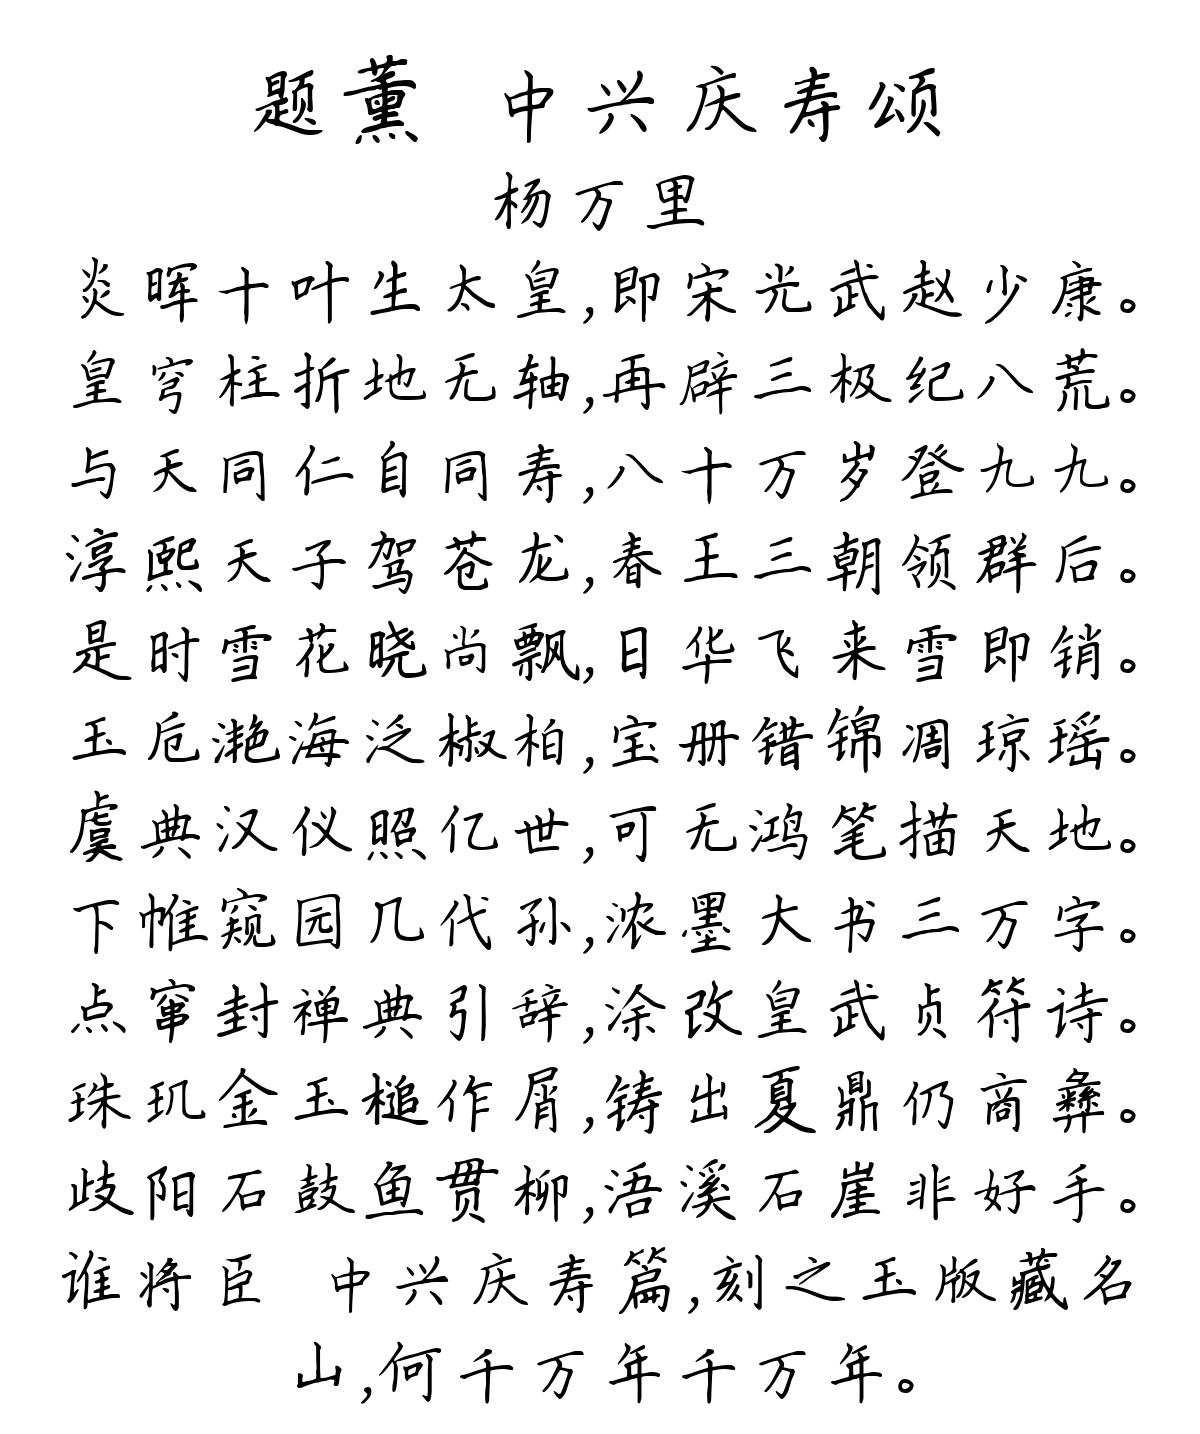 题薰 中兴庆寿颂
杨万里
炎晖十叶生太皇,即宋光武赵少康。
皇穹柱折地无轴,再辟三极纪八荒。
与天同仁自同寿,八十万岁登九九。
淳熙天子驾苍龙,春王三朝领群后。
是时雪花晓尚飘,日华飞来雪即销。
玉卮滟海泛椒柏,宝册错锦凋琼瑶。
虞典汉仪照亿世,可无鸿笔描天地。
下帷窥园几代孙,浓墨大书三万字。
点窜封禅典引辞,涂改皇武贞符诗。
珠玑金玉槌作屑,铸出夏鼎仍商彝。
歧阳石鼓鱼贯柳,浯溪石崖非好手。
谁将臣 中兴庆寿篇,刻之玉版藏名
山,何千万年千万年。